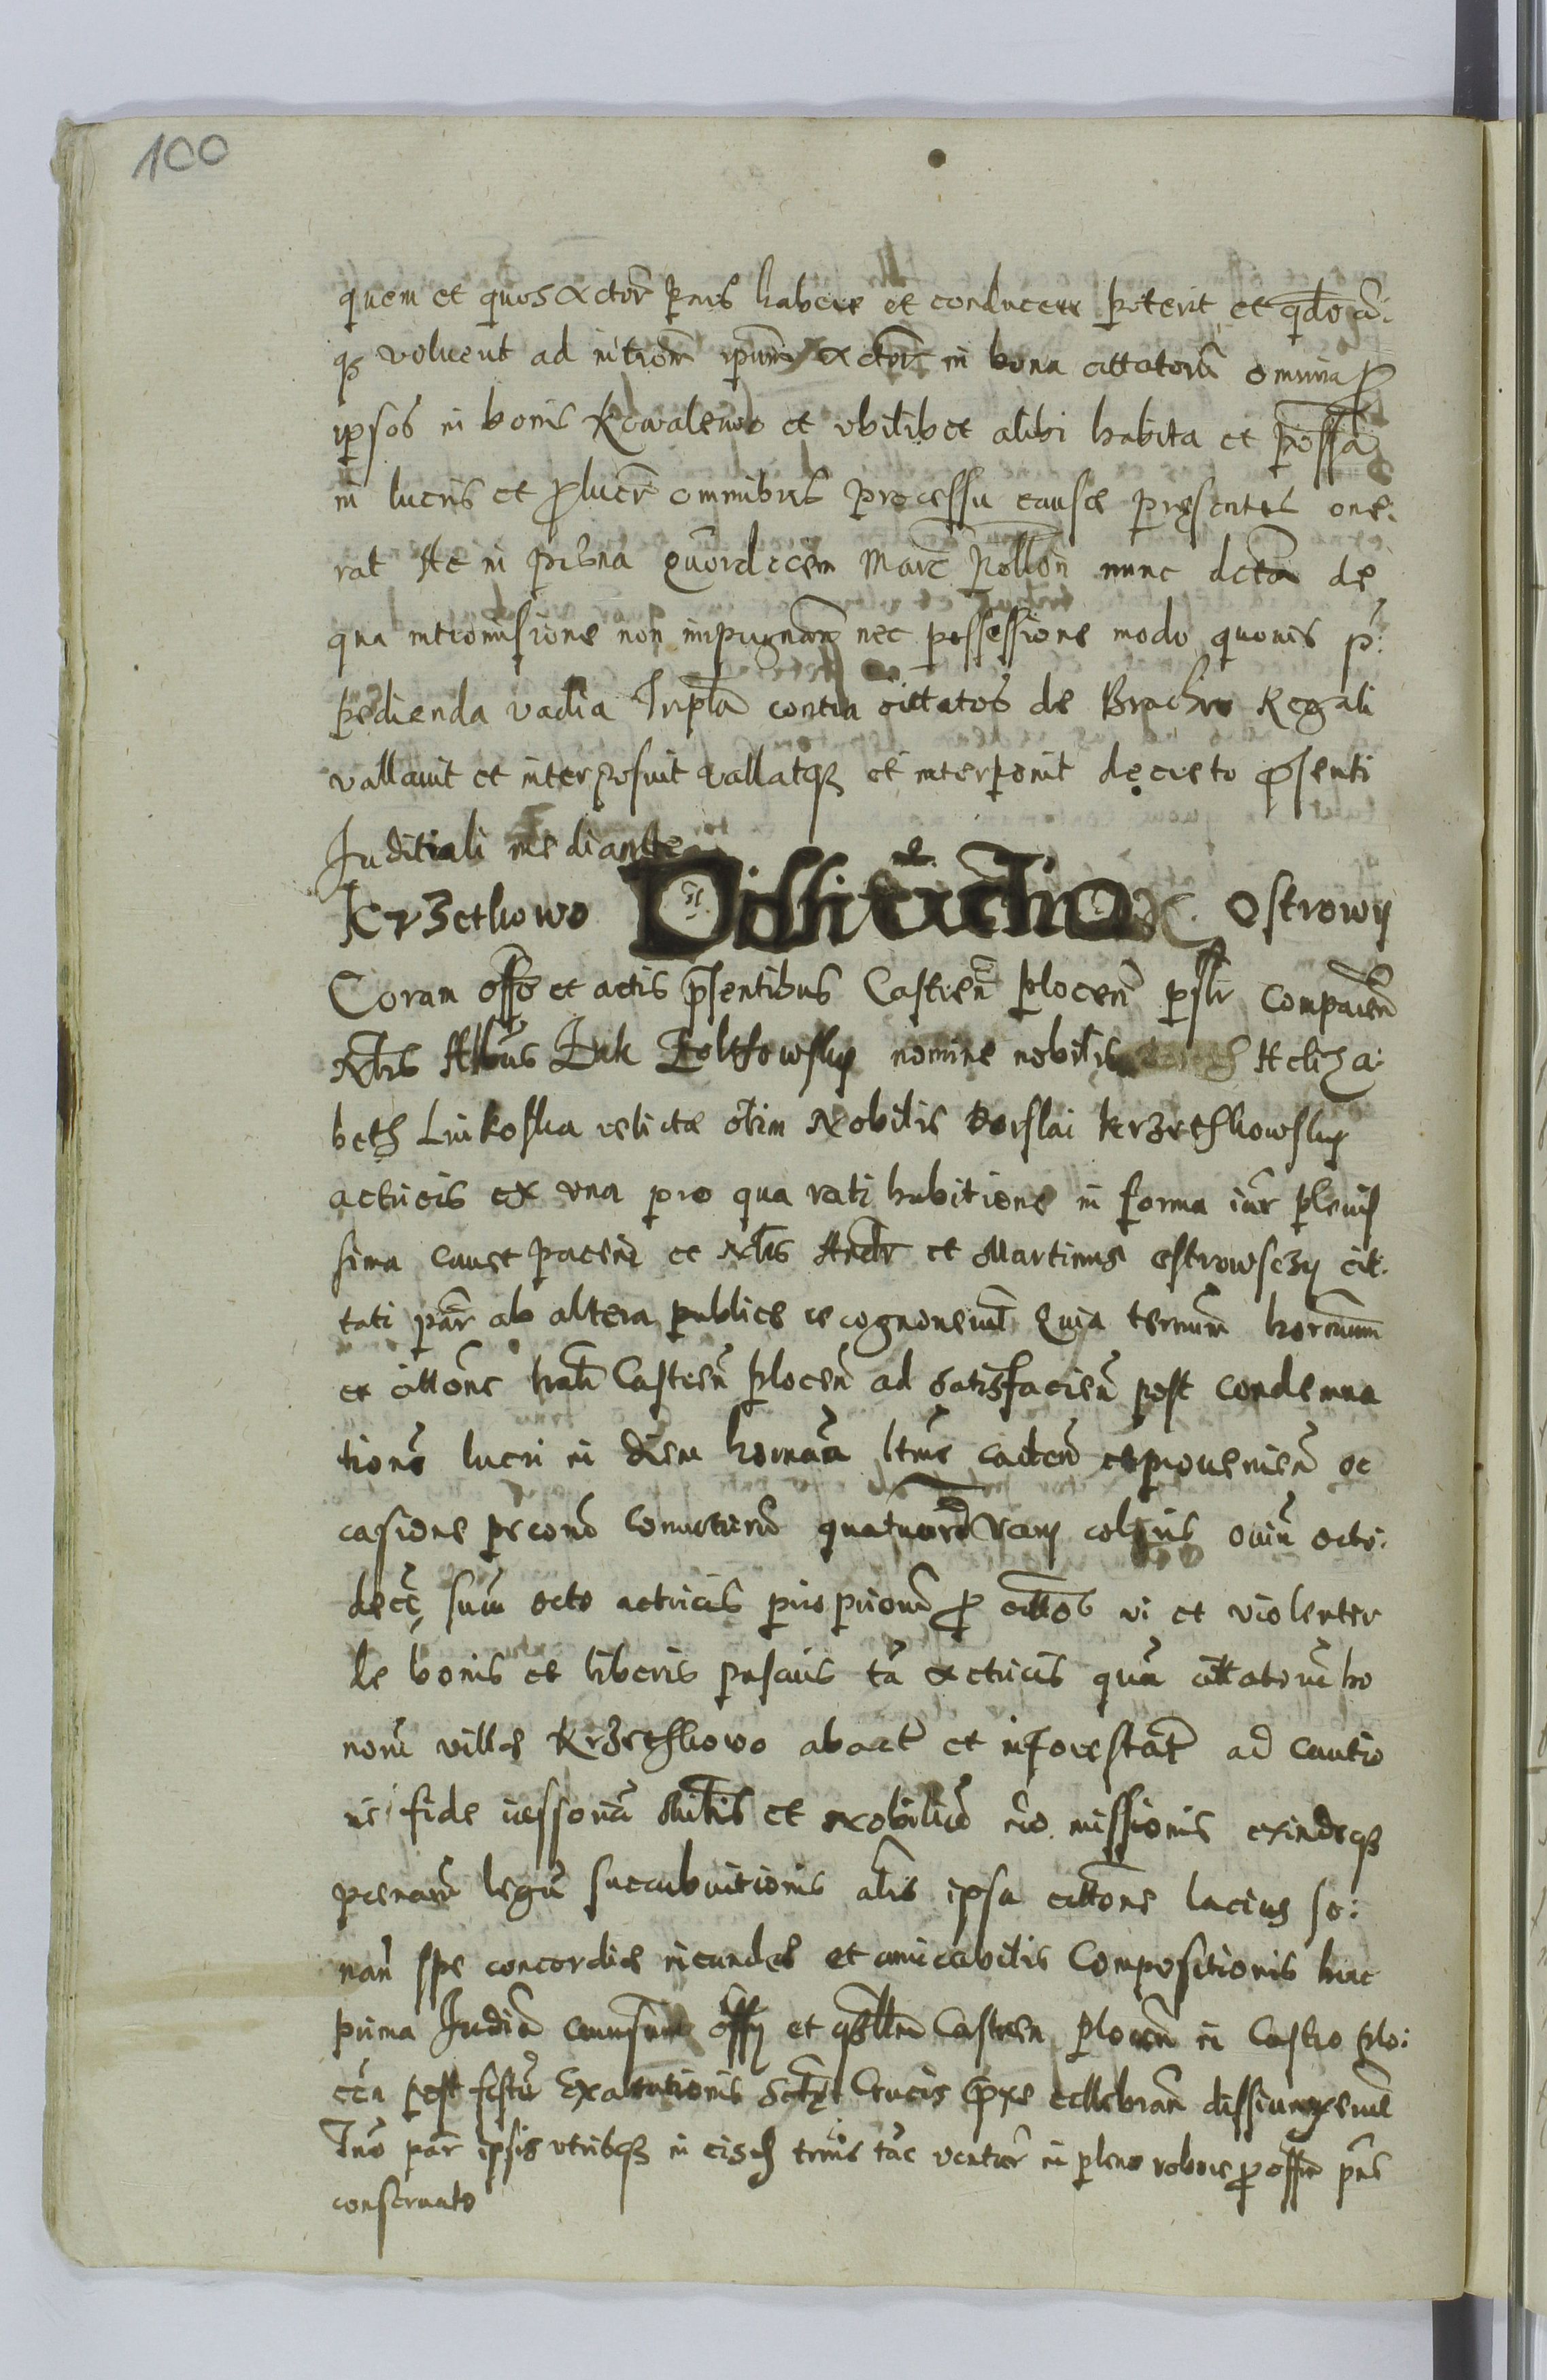 100
quem et quos Actor pns habere et conducere poterit et qdocū:
q voluerit ad intrōem ipsum Actōris in bona cittatorū omnia p
ipsos in bonis Kowalewo et ubilibet alibi habita et possessa
in lucris et plucr omnibus processu causæ pręsentes one:
rat Ac in pœna quordecem Marc Pollon nunc dcta de
qua intromissione non impugnan nec possessione modo quovis p:
pedienda vadia Tripla contra cittatos de Brachio Regali
vallavit et interposuit vallatq et interponit decreto psenti
Juditiali mediante
Krzethowo Ostrowy
Coram offo et actis psentibus Castren plocen pslr comparen
Nbis Albus Zuk Zoltowsky nomine nobilis Heliza:
beth Linkoska relictæ olim Nobilis Borslai Krzethkowsky
actricis ex una pro qua rati habitione in forma iur plenis
sima cavet pacem et Nbis Andr et Martinus ostrowsczy cit:
tati par ab altera publice recognoverut Quia termum hornum
ex cittone hali Castren plocen ad satisfacien post condemna
tione lucri in diem hornam ltme caden et provenien oc
casione pecorū quatuord Vary coloris oviu octo:
decē suu octo actricis propriorū p cittos vi et violenter
de bonis et liberis pascuis tā Actricis quā cittatorū bo
noru villæ Krzethkowo abact et inforestat ad cautio
ne fide iussoriā Militis et Nobiliū nō missionis exindeq
pœnarū legū succubuitionis alis ipsa cittone lacius so:
nan spe concordiæ ineundæ et amicabilis Compositionis hinc
prima Judicia offy et Castren plocen in Castro plo:
cen post festū Exaltationis Sctæ Crucis pxe cellebran dissiunxerut
Jure par ipsis utrisq in eisd tunc ventur in pleno robore p offm pns
conservato